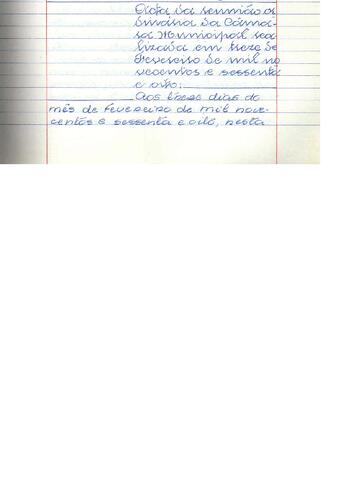 Acta da reunião or
dinária da Câma-
ra Municipal rea
lizada em treze de
Fevereiro de mil no
vecentos e sessenta
e oito:
Aos treze dias do
mês de fevereiro de mil nove-
centos e sessenta e oito, nesta